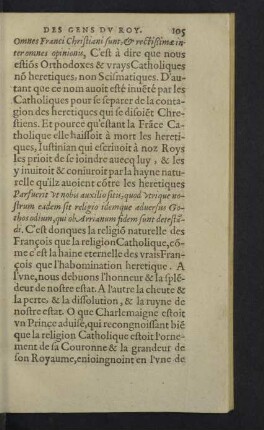 DES GENS DV ROY. 105
Omnes Franci Christiani sunt, & rectissimæ in-
ter omnes opinionis, C'est à dire que nous
estiõs Orthodoxes & vrays Catholiques
nõ heretiques, non Scismatiques. D'au-
tant que ce nom auoit esté inuẽté par les
Catholiques pour se separer de la conta-
gion des heretiques qui se disoiẽt Chre-
stiens. Et pource qu'estant la Frãce Ca-
tholique elle haïssoit à mort les hereti-
ques, Iustinian qui escriuoit à noz Roys
les prioit de se ioindre auecq luy, & les
y inuitoit & coniuroit par la hayne natu-
relle qu'ilz auoient cõtre les heretiques
Par fuerit vt nobis auxilio sitis, quod vtrique no-
strum eadem sit religio idemque aduersus Go-
thos odium, qui ob Arrianum fidem sunt detestã-
di. C'est donques la religiõ naturelle des
François que la religion Catholique, cõ-
me c'est la haine eternelle des vrais Fran-
çois que l'habomination heretique. A
l'vne, nous debuons l'honneur & la splẽ-
deur de nostre estat. A l'autre la cheute &
la perte, & la dissolution, & la ruyne de
nostre estat. O que Charlemaigne estoit
vn Prince aduisé, qui recongnoissant biẽ
que la religion Catholique estoit l'orne-
ment de sa Couronne & la grandeur de
son Royaume, enioingnoint en l'vne de